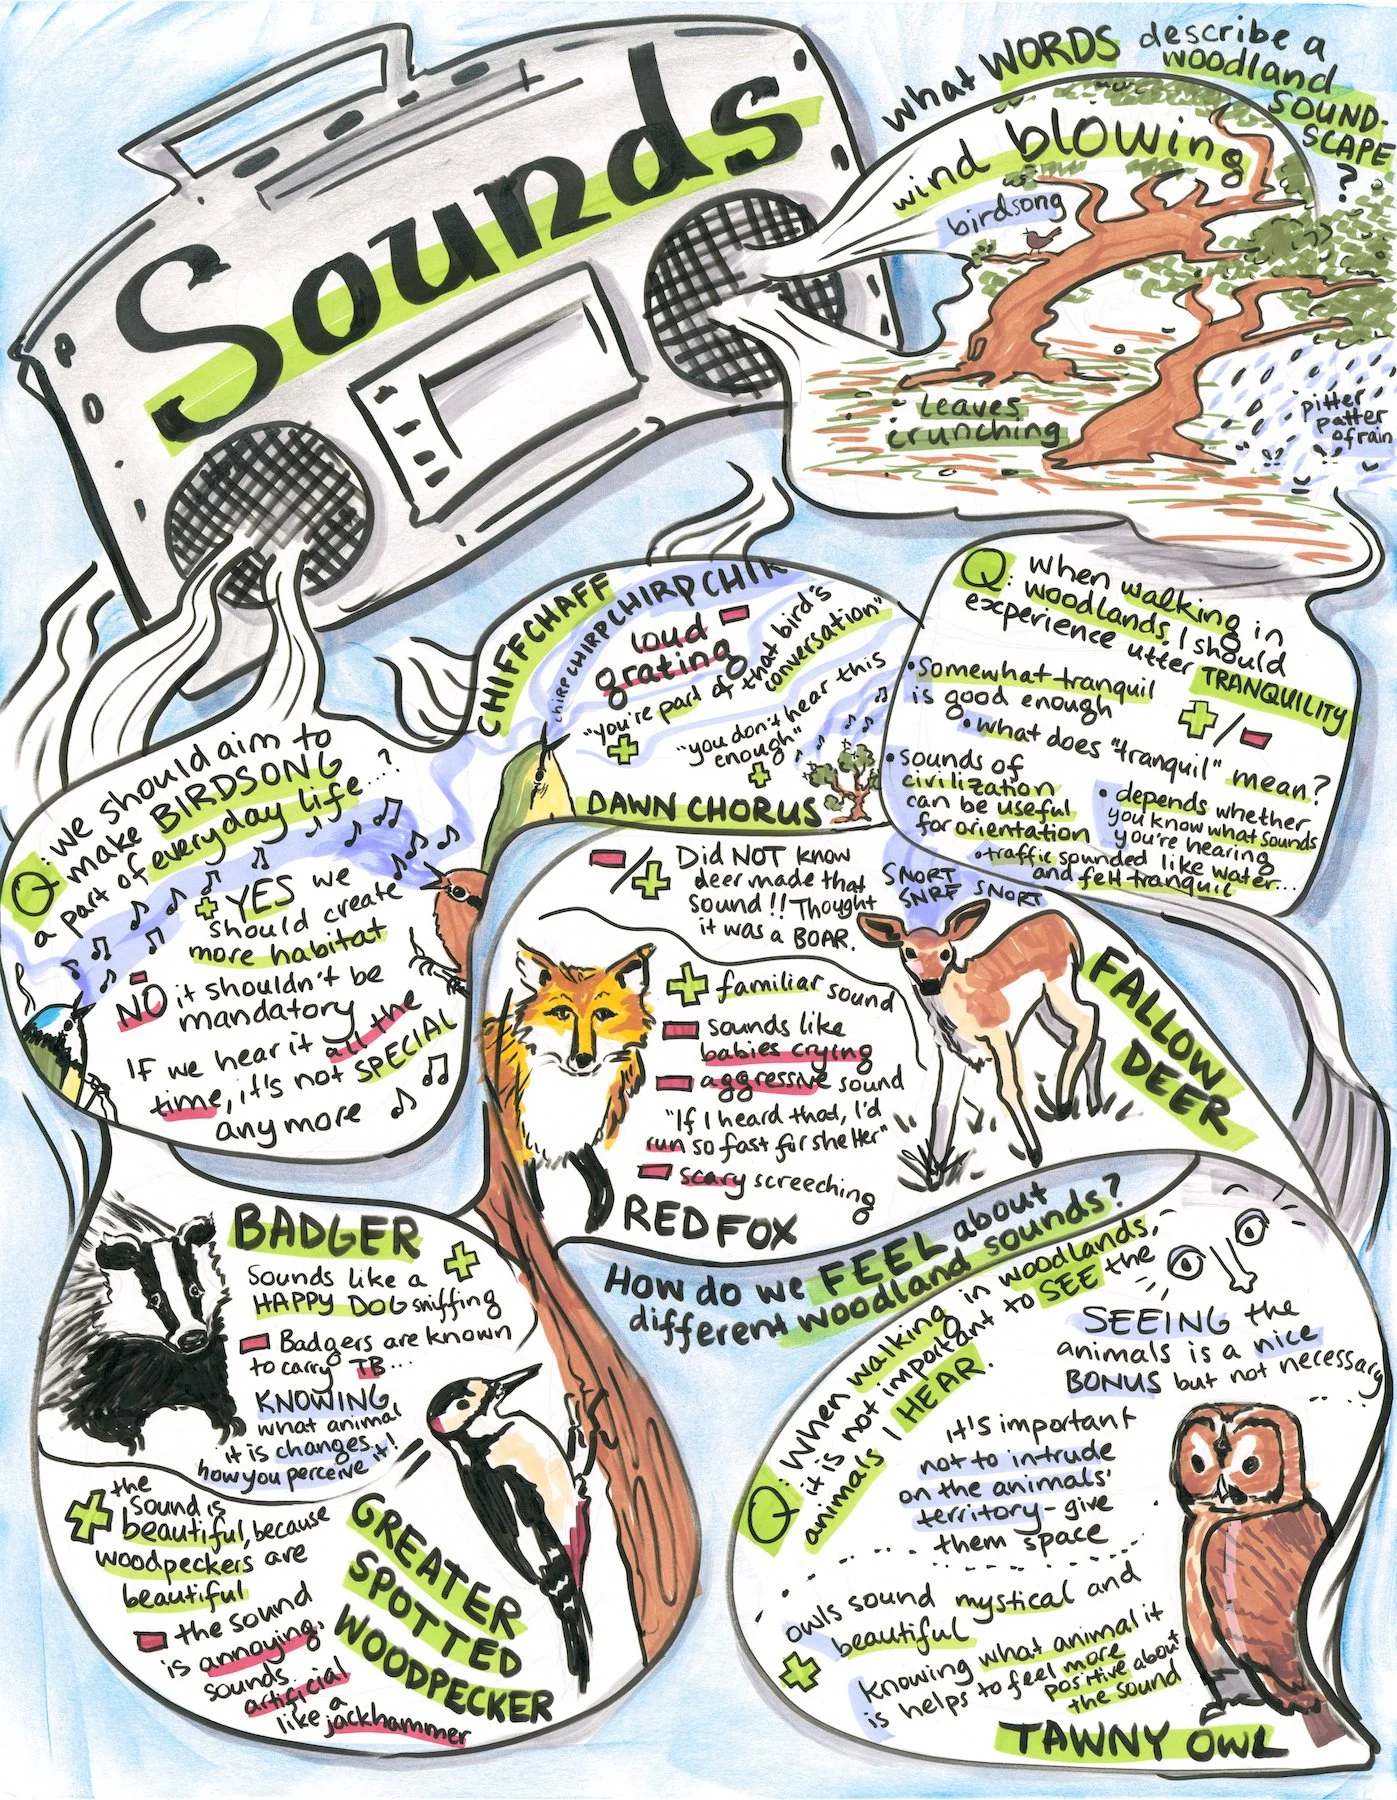 Sounds
What WORDS describe a
woodland
SOUND-
SCAPE
?
wind blowing
birdsong
leaves
crunching
pitter
patter
of rain
CHIFFCHAFF
CHIRP CHIRP CHIRP CHIR
loud -
grating
"you're part of that bird's
conversation"
+
"you don't hear this
enough"
+
DAWN CHORUS
Q: When walking in
woodlands, I should
experience utter TRANQUILITY
+/-
• somewhat tranquil
is good enough
• what does "tranquil" mean?
• sounds of
civilization
can be useful
for orientation
• depends whether
you know what sounds
you're hearing
• traffic sounded like water...
and felt tranquil
Q: We should aim to
make BIRDSONG
a part of everyday life...?
+ YES we
should create
more habitat
-
NO it shouldn't be
mandatory
IF we hear it all the
time, it's not SPECIAL
any more
-/+ Did NOT know
deer made that
sound!! Thought
it was a BOAR.
SNORT
SNRF SNORT
FALLOW
DEER
+ familiar sound
- sounds like
babies crying
- aggressive sound
"If I heard that, I'd
run so fast for shelter"
- scary screeching
RED FOX
How do we FEEL about
different woodland sounds?
BADGER
+
Sounds like a
HAPPY DOG sniffing
- Badgers are known
to carry TB...
KNOWING
what animal
it is changes
how you perceive it!
+ the
sound is
beautiful, because
woodpeckers are
beautiful
- the sound
is annoying,
sounds
artificial
like a
jackhammer
GREATER
SPOTTED
WOODPECKER
Q: When walking in woodlands,
it is not important to SEE the
animals I HEAR.
SEEING the
animals is a nice
BONUS but not necessary
it's important
not to intrude
on the animals'
territory - give
them space
owls sound mystical and
beautiful
+
Knowing what animal it
is helps to feel more
positive about
the sound
TAWNY OWL